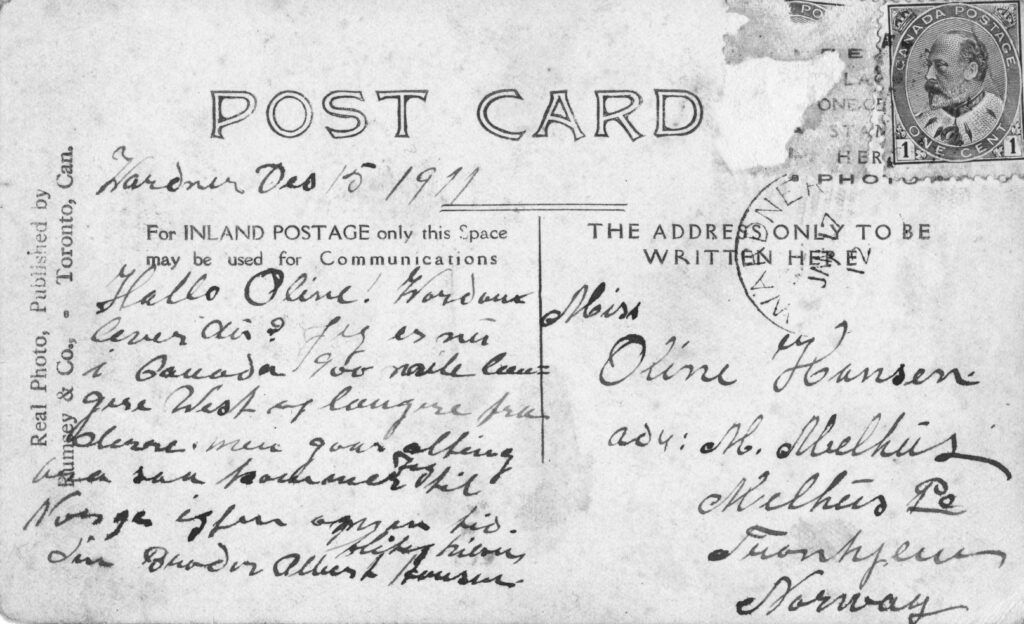 POST CARD
CANADA POSTAGE
1 ONE CENT 1
ONE CE
STAM
HER
PHOT
Wardner Des 15 1911
WARDNER
JAN 17
12
Real Photo, Published by
Rumsey & Co., - Toronto, Can.
For INLAND POSTAGE only this Space
may be used for Communications
THE ADDRESS ONLY TO BE
WRITTEN HERE
Hallo Oline! Wordan
lever du? Jeg er nu
i Canada 900 mile læn=
gere West og længere fra
derre. men gaar alting
bra saa kommer jeg til
Norge igjen om en tid.
Din Broder Albert Hansen.
Miss
Oline Hansen
adr: M. Melhus
Melhus Po
Trontjem
Norway